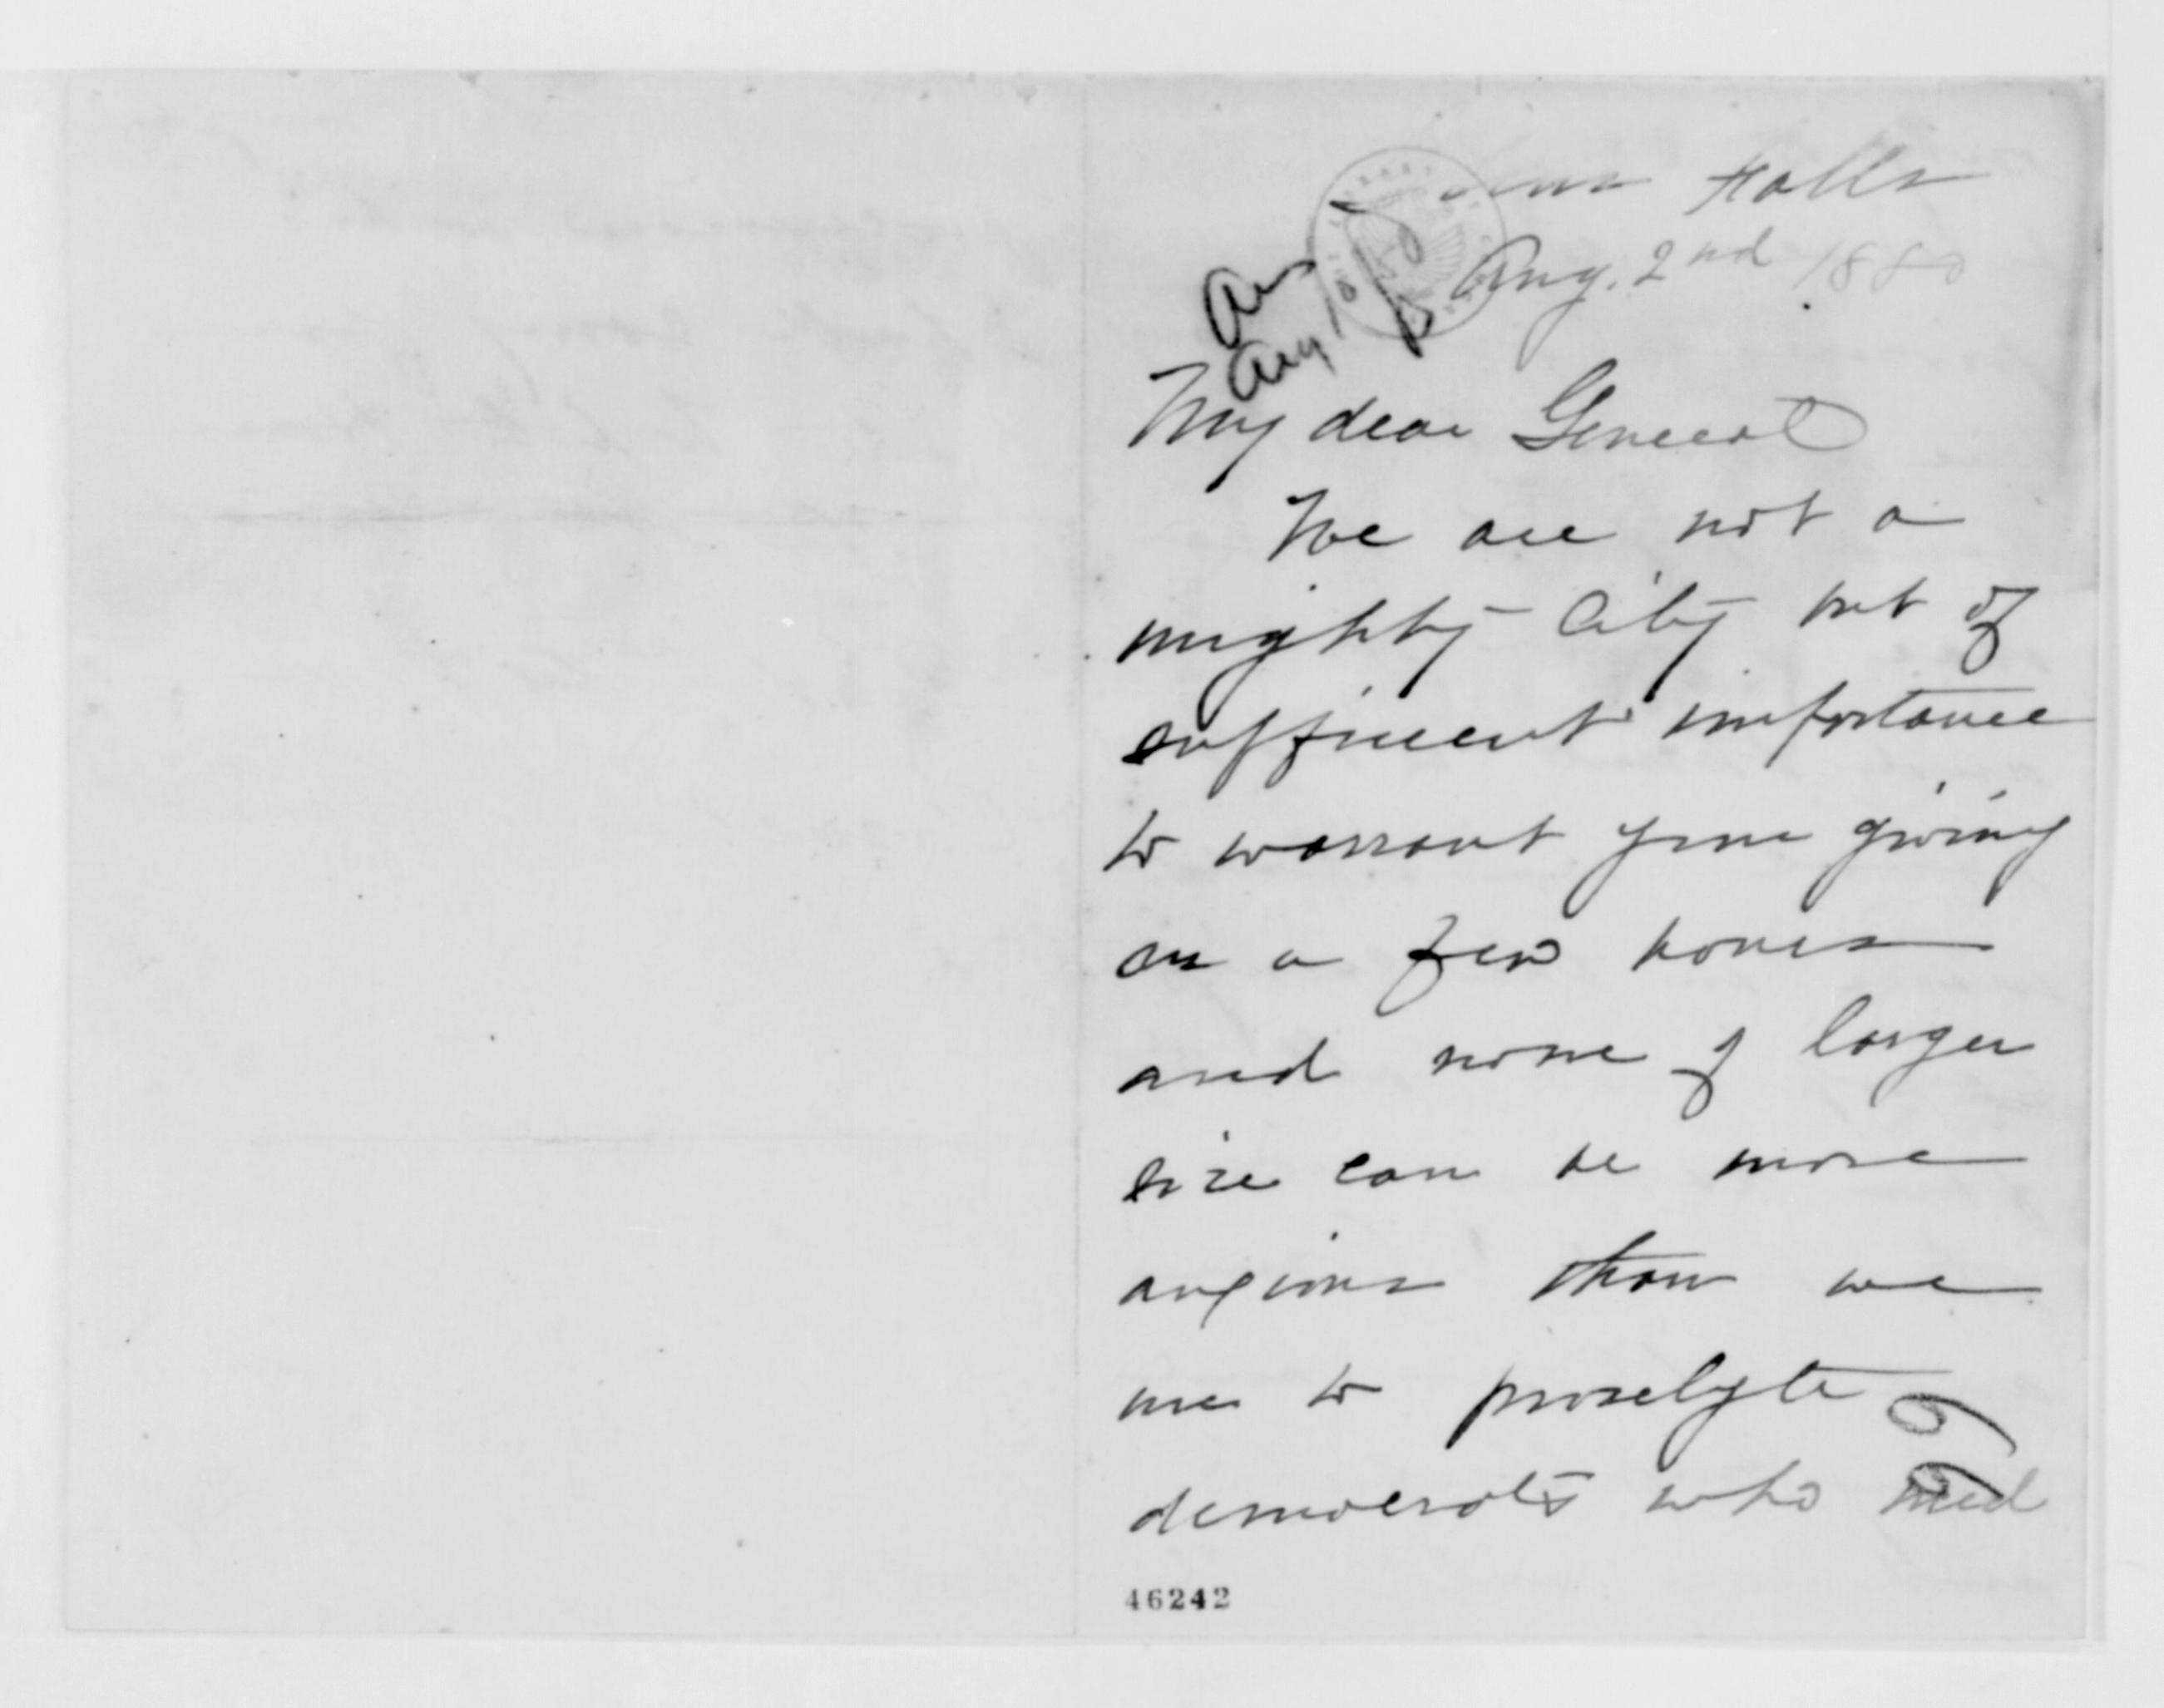 Falls
Aug. 2nd 1880
Ans
Aug
My dear General
We are not a
mighty City but of
sufficient importance
to warrant your giving
us a few hours
and none of larger
size can be more
anxious than we
are to proselyte
democrats who need
46242